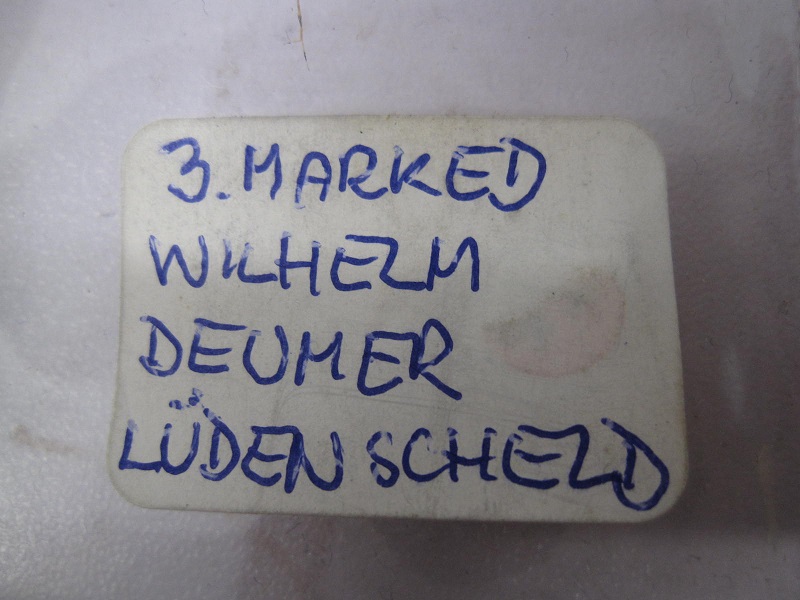 3. MARKED
WILHELM
DEUMER
LÜDENSCHELD